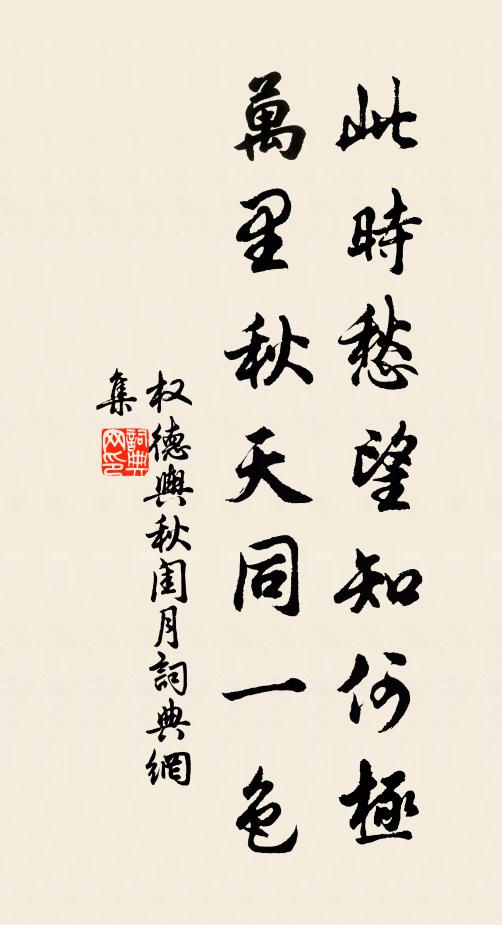 此時愁望知何極
萬里秋天同一色
权德輿秋閨月詞典網
集
詞典
网印